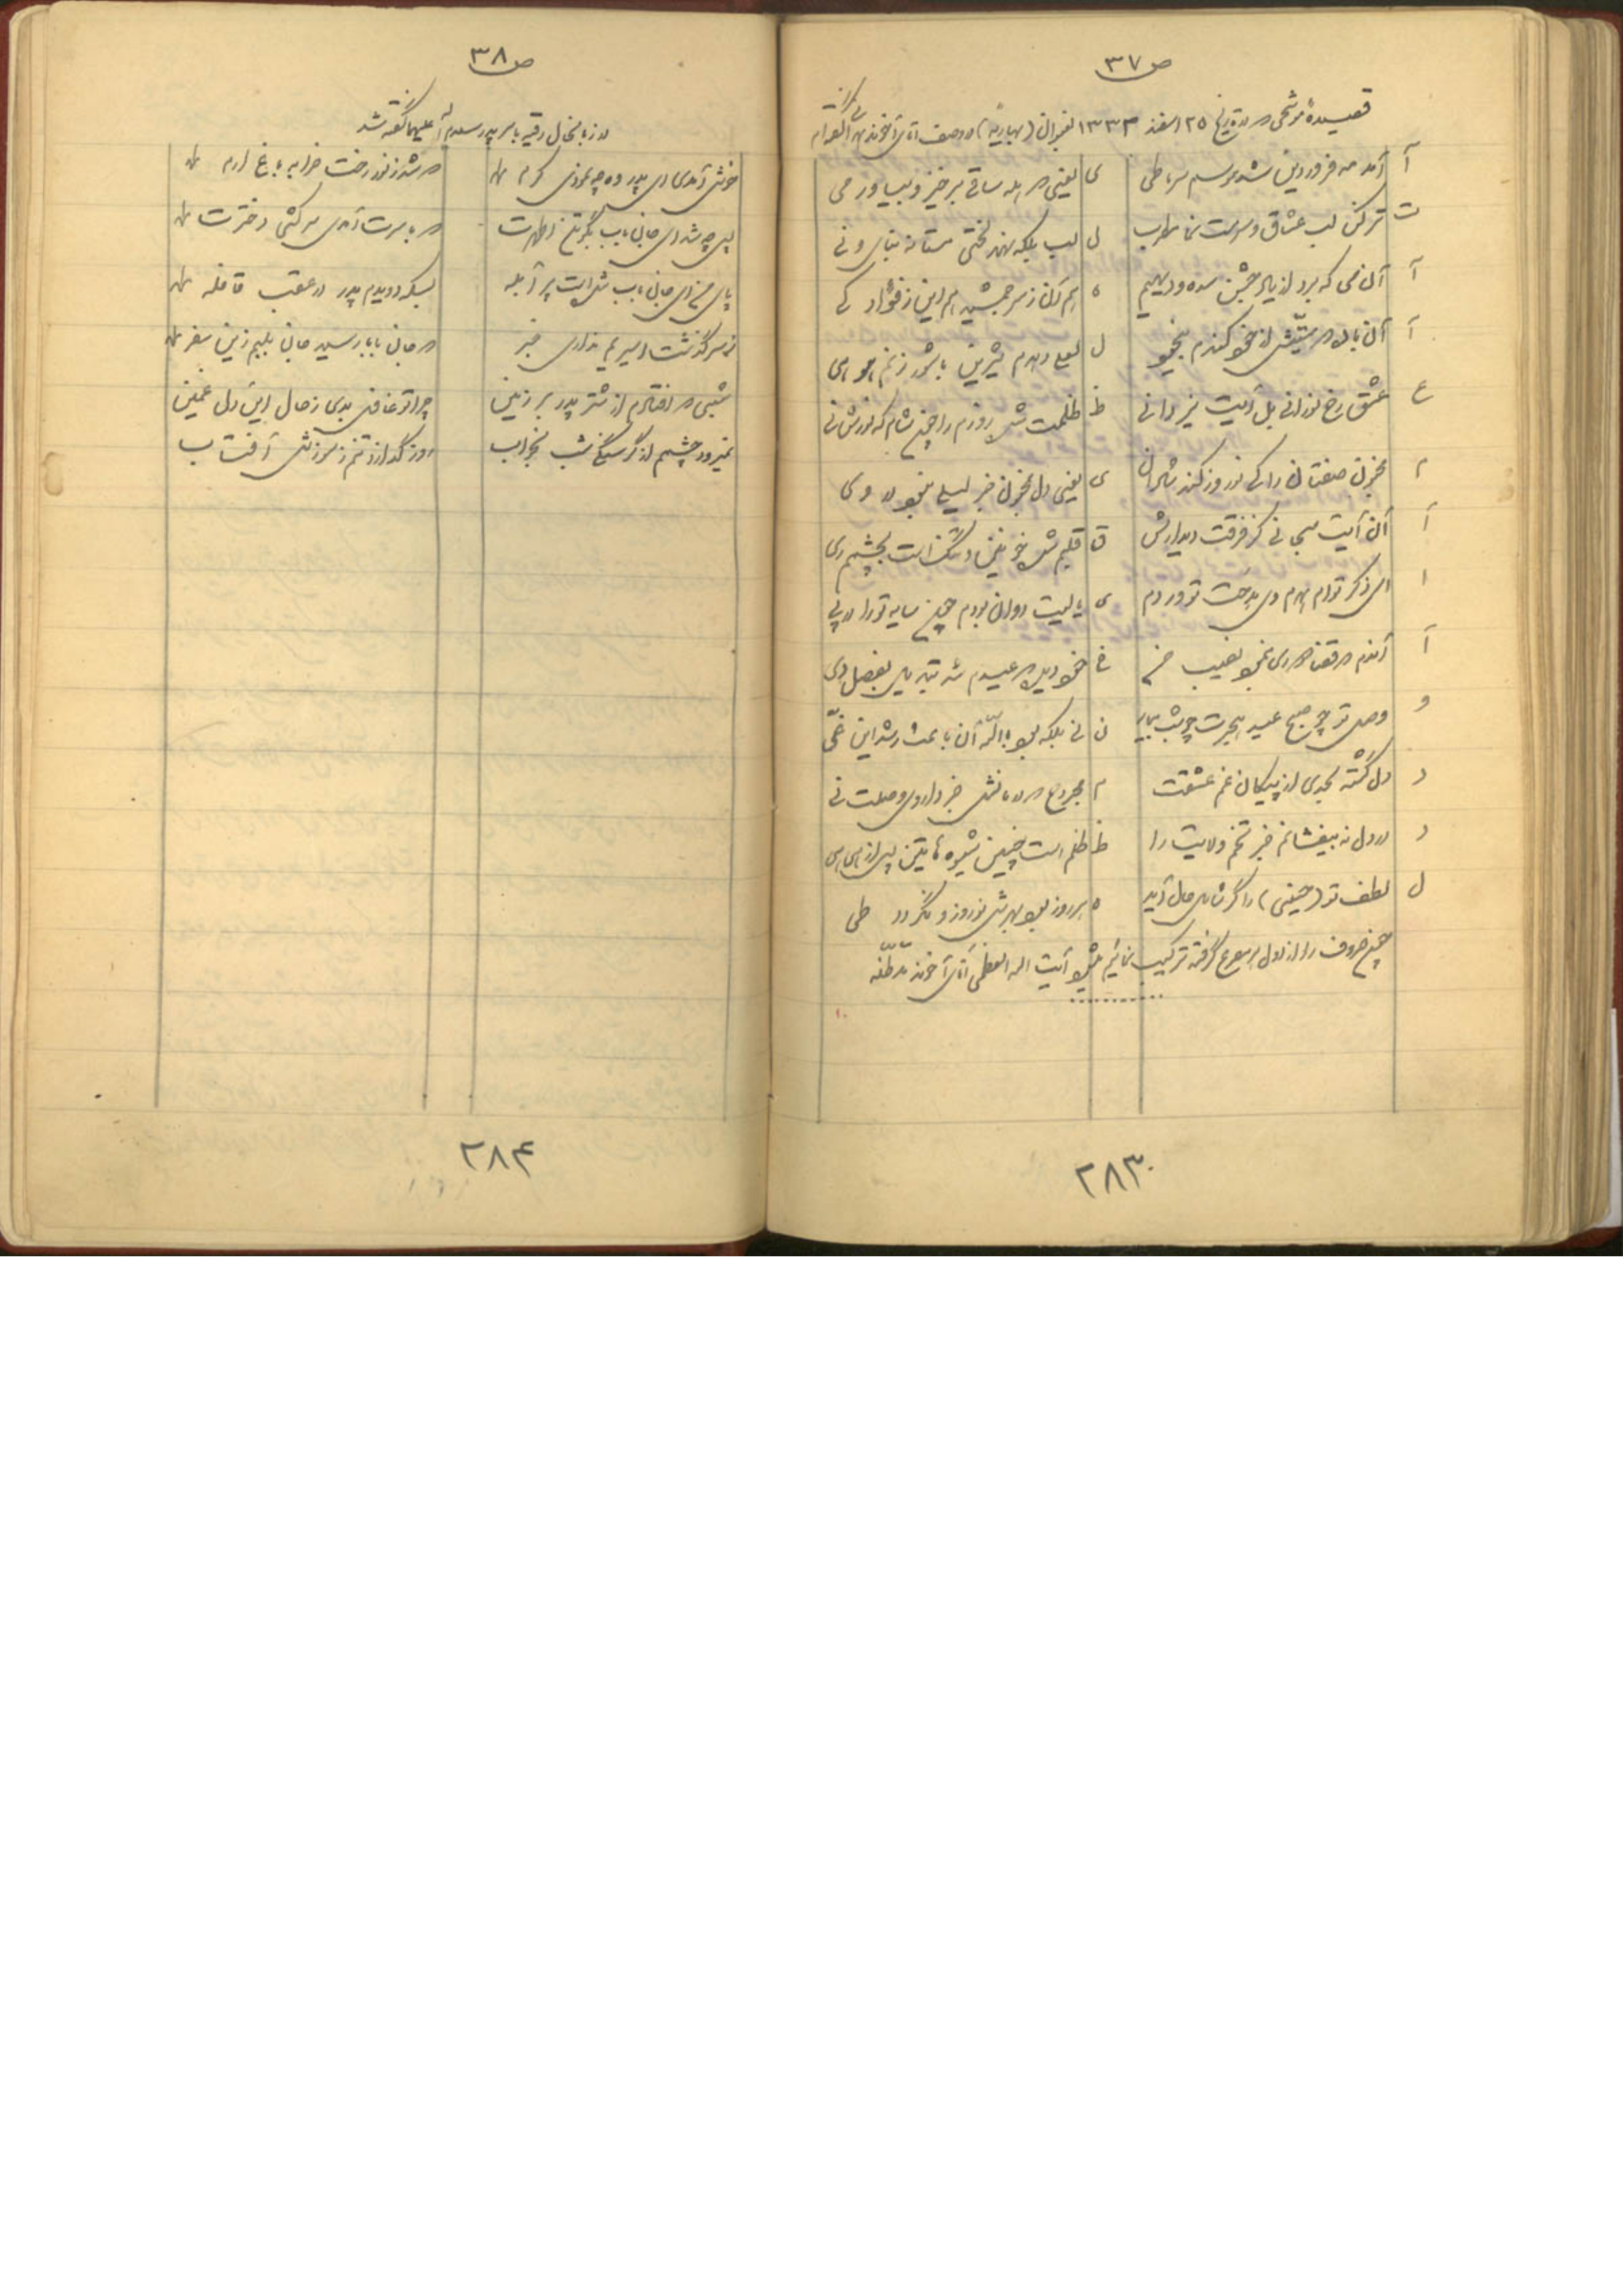 ص ۳۷
قصیده موشحی که در تاریخ ۲۵ اسفند ۱۳۳۳ بعنوان (بهاریه) در وصف آقای آخوند گفته‌ام
آ آمد مه فروردین شد موسم سرما طی ی یعنی که هله ساقی برخیز و بیاور می
ت تر کن لب عشاق و سرمست نما مطرب ل لب بلکه نهد لختی مستانه بنای و نی
آ آن می که برد از یاد جشن سده و دیهیم ه هم آن ز سر جمشید هم این ز فؤاد کی
آ آن باده که مستیش از خود کندم بیخود ل لعلی دهدم شیرین با شور زنم هو هی
ع عشق رخ نورانی بل آیت یزدانی ظ ظلمت شد روزم را چون شام که نورش نی
م مجنون صفتان را کی نوروز کند شادان ی یعنی دل مجنون جز لیلی نبود در وی
آ آن آیت سبحانی کز فرقت دیدارش ق قلبم شده خونین و اشک است بچشمم ری
ا ای ذکر توام همدم وی مدحت تو وردم ی یا لیت دوان بودم چون سایه تو را در پی
آ آندم که قضا کردی غم نصیب من خ خود دید که عیدم شد تبدیل بفصل دی
و وصل تو چو صبح عید هجرت چو شب یلدا ن نی بلکه بود بالله آن باعث رشد این غی
د دل گشته بحدی از پیکان غم عشقت م مجروح که درمانش جز داروی وصلت نی
د در دل نه بیفشانم جز تخم ولایت را ظ ظلم است چنین شیوه
ل لطف تو (حسینی) را گر شامل حال آید ه هر روز بود بهرش نوروز و نگردد طی
چون حروف را از اول هر مصرع گرفته ترکیب نمائیم میشود آیت اله العظمی آقای آخوند مد ظله
۲۸۳
ص ۳۸
در زبانحال رقیه با سر پدر سلام الله علیهما گفته شد
خوش آمدی ای پدر وه چه نمودی کرم که شد ز نور رخت خرابه باغ ارم
پس چه شد ای جان باب بگو تن اطهرت که با سرت آمدی سرکشی دخترت
پای من ای جان باب شده است پر آبله بسکه دویدم پدر در عقب قافله
ز سرگذشت اسیریم نداری خبر که جان بابا رسید جان بلبم زین سفر
شبی که افتادم از شتر پدر بر زمین چرا تو غافل بدی ز حال این دل غمین
نمیرود چشمم از گرسنگی شب بخواب روز گدازد تنم ز سوزش آفتاب
۲۸۴